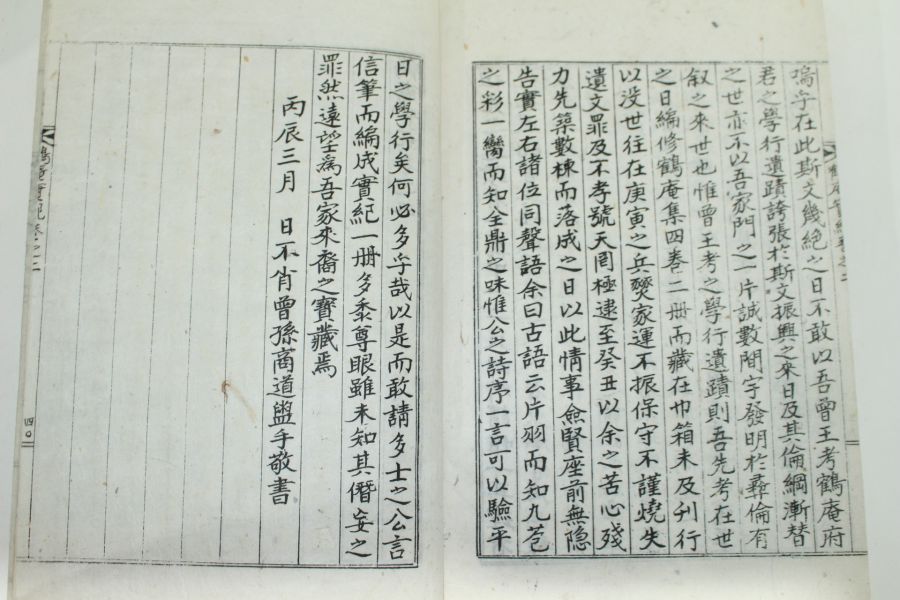 嗚乎在此斯文幾絶之日不敢以吾曾王考鶴庵府
君之學行遺蹟誇張於斯文振興之來日及其倫綱漸替
之世亦不以吾家門之一片誠數間字發明於彛倫有
叙之來世也惟曾王考之學行遺蹟則吾先考在世
之日編修鶴庵集四卷二册而藏在巾箱未及刋行
以没世往在庚寅之兵燹家運不振保守不謹燒失
遺文罪及不孝號天罔極逮至癸丑以余之苦心殘
力先築數棟而落成之日以此情事僉賢座前無隐
告實左右諸位同聲語余曰古語云片羽而知九苞
之彩一臠而知全鼎之味惟公之詩序一言可以驗平
日之學行矣何必多乎哉以是而敢請多士之公言
信筆而編成實紀一册多黍尊眼雖未知其僭妄之
罪然遠望爲吾家來裔之寶藏焉
丙辰三月 日不肖曾孫商道盥手敬書
四〇